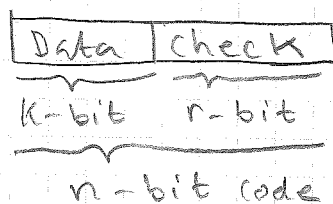 Data check
k-bit r-bit
n-bit code